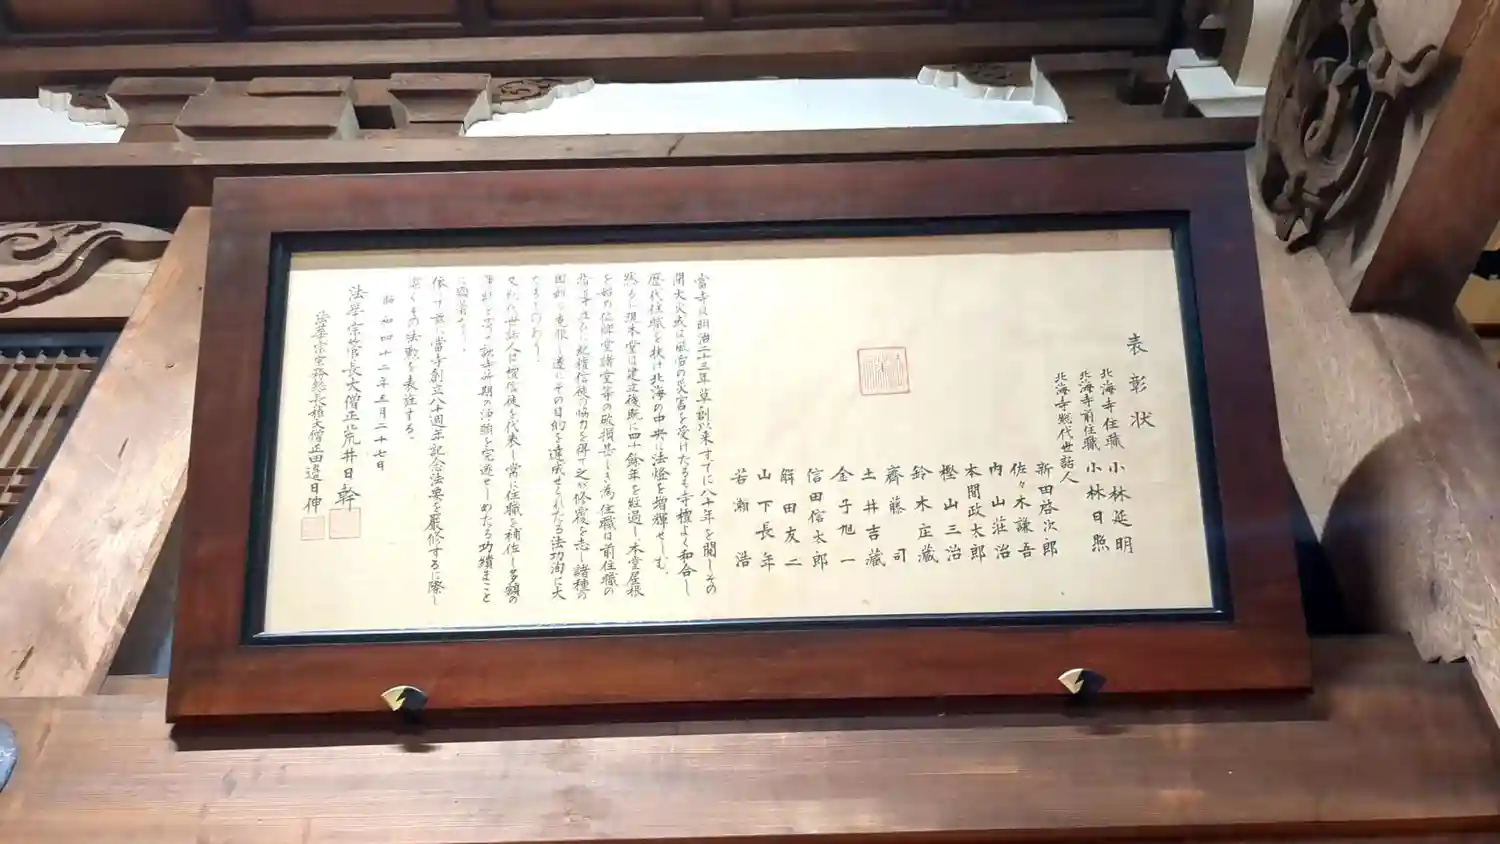 表彰状
北海寺住職 小林延明
北海寺前住職 小林日照
北海寺総代世話人
新田啓次郎
佐々木謙吾
内山荘治
本間政太郎
樫山三治
鈴木庄蔵
齊藤司
土井吉蔵
金子旭一
信田信太郎
友二
山下長年
若瀬浩
當寺は明治二十三年草創以来すでに八十年を閲しその
間大火或は風雪の災害を受けたるも寺檀よく和合し
歴代住職を扶け北海の中央に法燈を増輝せしむ、
然るに現本堂は建立後既に四十餘年を経過し本堂屋根
を始め位牌堂諸堂等の破損甚しき為住職は前住職の
檀信徒の協力を得て之が修復を志し諸種の
困難を克服し遂にその目的を達成せられたる法功洵に大
たるものあり、
又総代世話人は檀信徒を代表し常に住職を補佐し多額の
を完遂せしめたる功績まこと
に顕著なり、
依って茲に當寺創立八十週年記念法要を厳修するに際し
深くその法勲を表旌する。
昭和四十二年五月二十七日
法華宗管長大僧正荒井日幹
法華宗宗務総長権大僧正田邉日伸